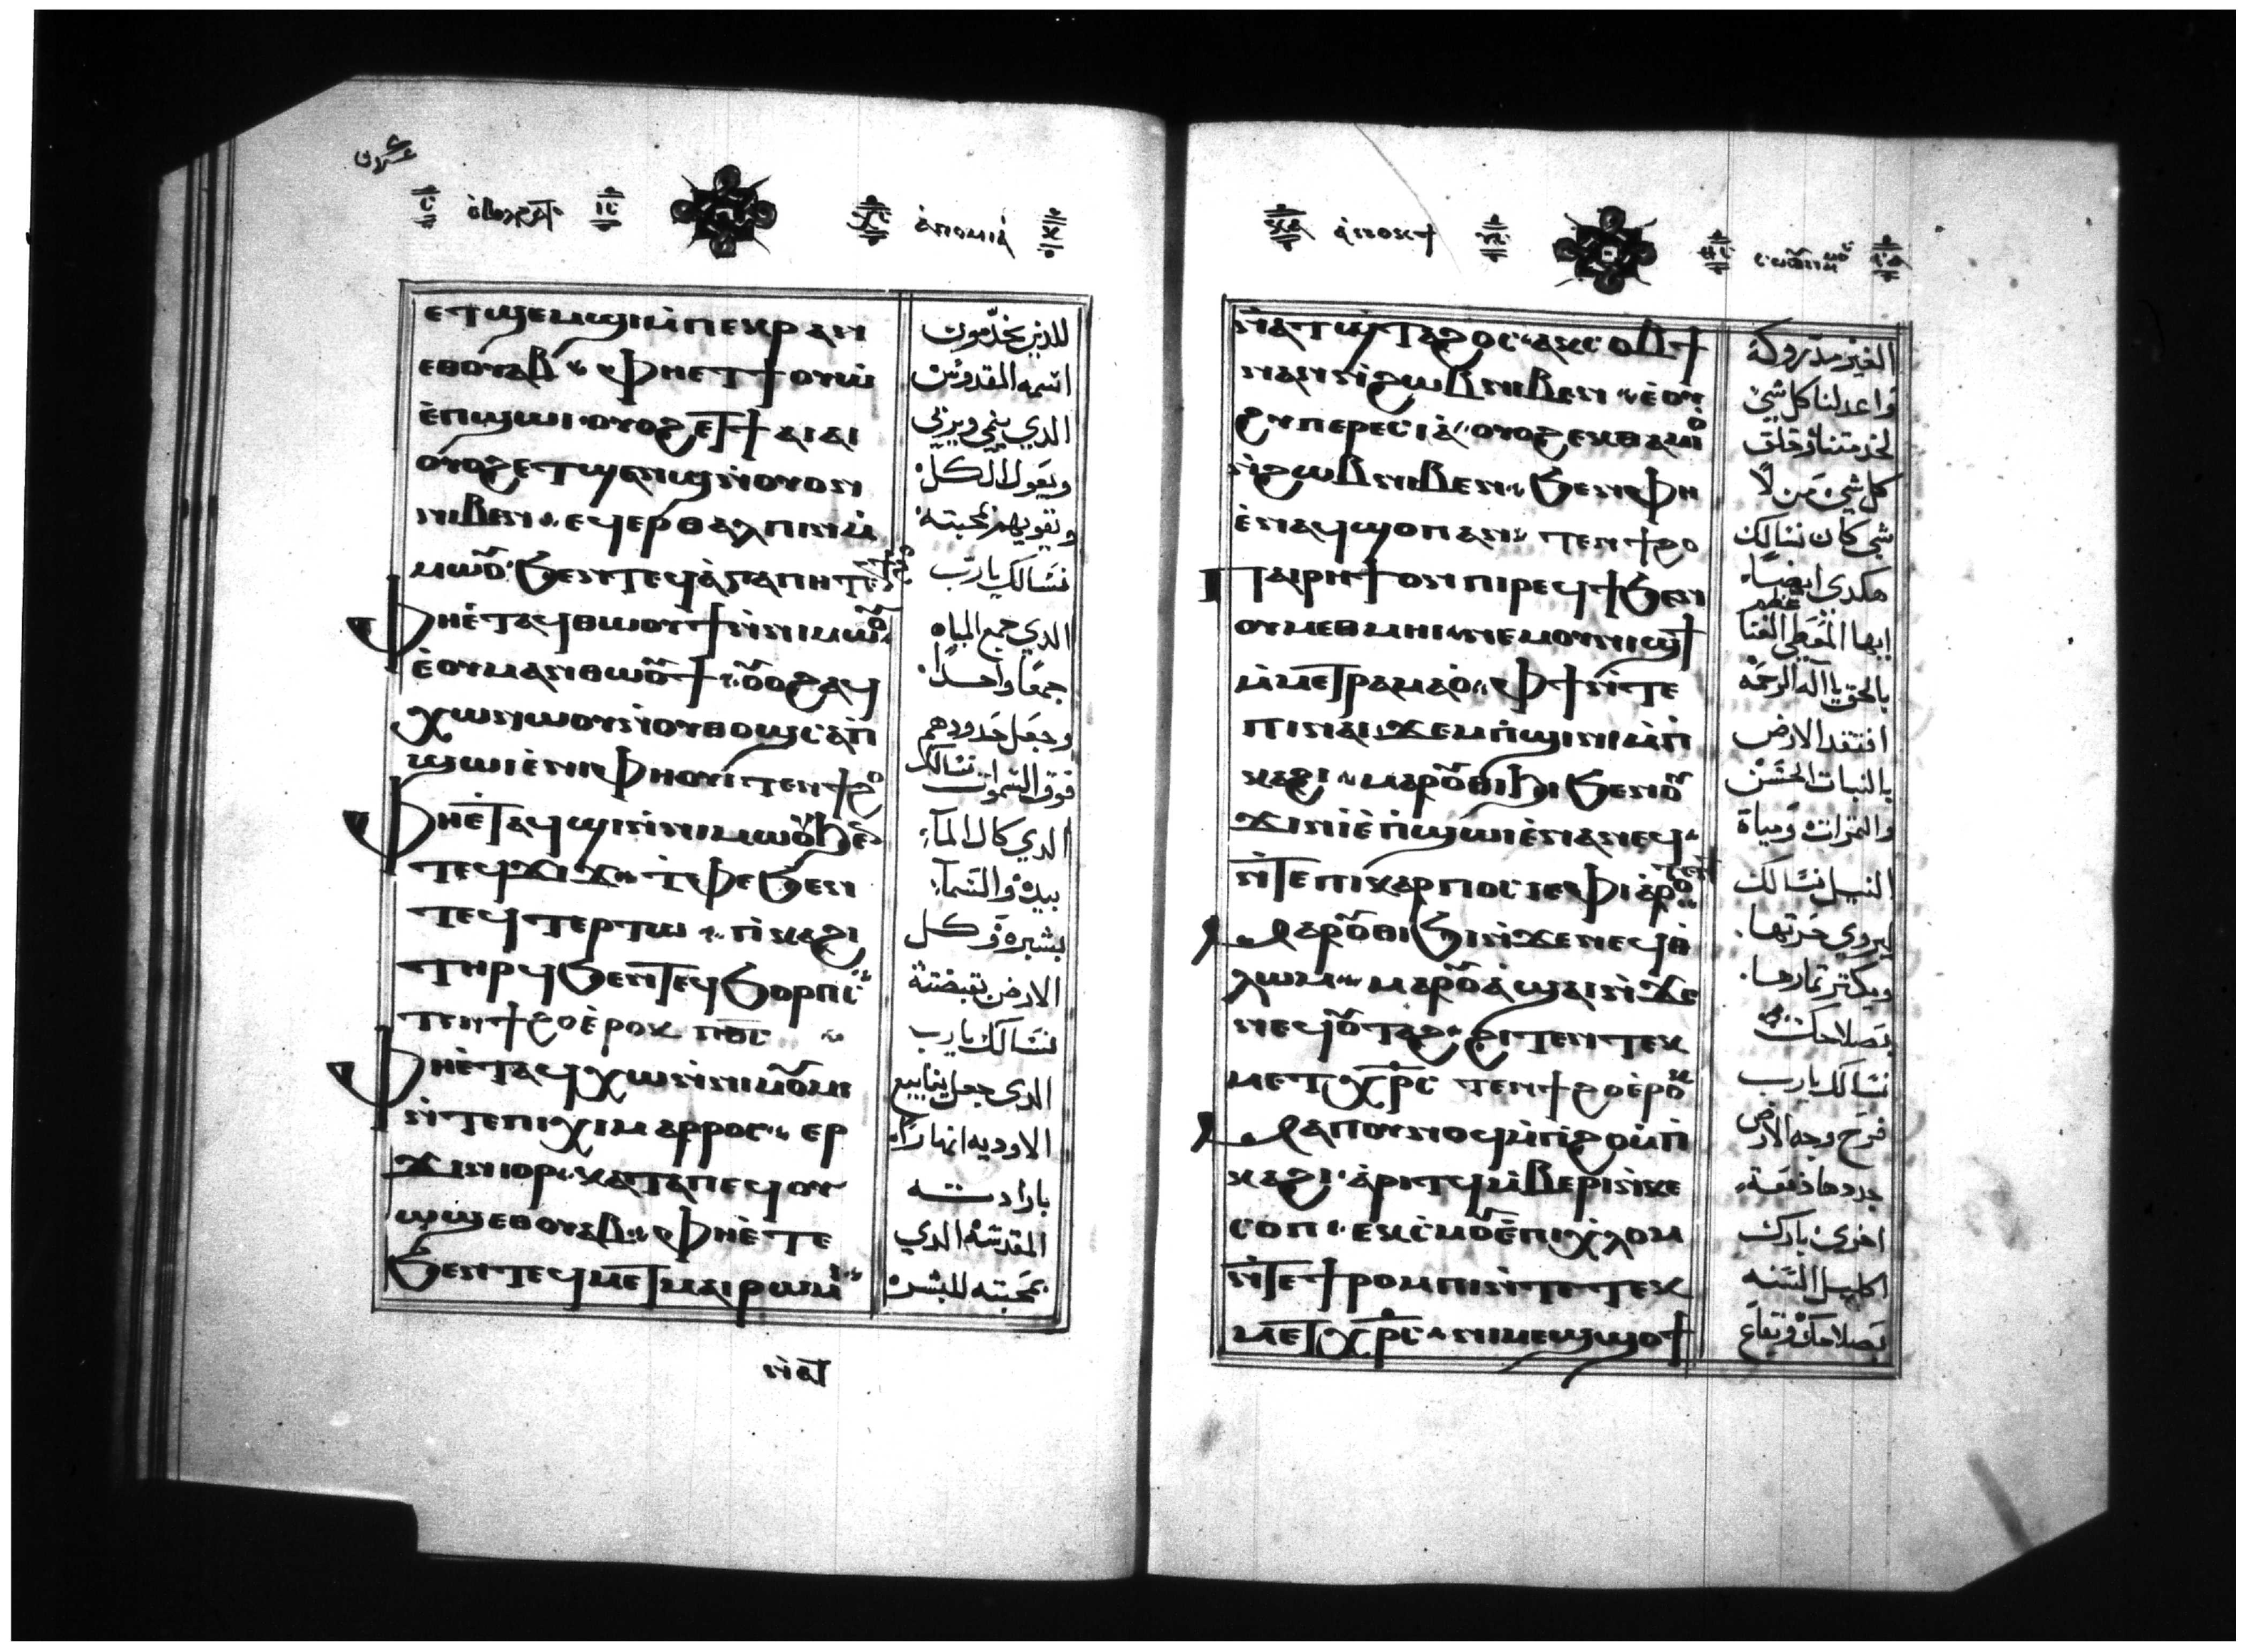 ⲉⲧϣⲉⲙϣⲓⲙ̀ⲡⲉⲕⲣⲁⲛ
ⲉⲑⲟⲩⲁⲃ ⲫⲏⲉⲧϯⲟⲩⲱ̀
ⲉ̀ⲡϣⲱⲓ ⲟⲩⲟϩ ⲉⲧϯⲁⲓⲁⲓ
ⲟⲩⲟϩ ⲉⲧϣⲉⲛϣⲛ̀ⲟⲩⲟⲛ
ⲛⲓⲃⲉⲛ ⲉϥⲉⲣⲑⲁⲗⲡⲓⲛⲙ̀
ⲙⲱⲟⲩ ϧⲉⲛⲧⲉϥⲁ̀ⲅⲁⲡⲏ
ⲫⲏⲉ̀ⲧⲁϥⲑⲱⲟⲩϯⲛ̀ⲛⲓⲙⲱⲟⲩ
ⲉ̀ⲟⲩⲙⲁⲛⲑⲱⲟⲩϯ ⲟⲩⲟϩ ⲁϥ
ⲭⲱⲛⲱⲟⲩⲛ̀ⲟⲩⲑⲟϣ ⲥⲁⲡ̀
ϣⲱⲓ ⲉ̀ⲛⲓⲫⲏⲟⲩⲓ̀ ⲧⲉⲛϯϩⲟ
ⲫⲏⲉ̀ⲧⲁϥϣⲓⲛ̀ⲛⲓⲙⲱⲟⲩ ϧⲉⲛ
ⲧⲉϥϫⲓϫ ⲧ̀ⲫⲉ ϧⲉⲛ
ⲧⲉϥⲧⲉⲣⲧⲱ ⲡⲓⲕⲁϩⲓ
ⲧⲏⲣϥ ϧⲉⲛⲧⲉϥϭⲟⲣⲡⲥ
ⲧⲉⲛϯϩⲟⲉ̀ⲣⲟⲕ ⲡ̅ⲟ̅ⲥ̅
ⲫⲏⲉ̀ⲧⲁϥⲭⲱⲛ̀ⲛⲓⲙⲟⲩⲙⲓ
ⲛ̀ⲧⲉⲡⲓⲭⲓⲙⲁⲣⲣⲟⲥ ⲉⲣ
ϫⲓⲛⲓⲟⲣ ⲕⲁⲧⲁⲡⲉϥⲟⲩ
ⲱϣ ⲉⲑⲟⲩⲁⲃ ⲫⲏⲉ̀ⲧⲉ
ϧⲉⲛⲧⲉϥⲙⲉⲧⲙⲁⲓⲣⲱⲙⲓ
ⲛ̀ⲁⲧ
للذين يخدمون
اسمه القدوس
الدي ينمي ويربي
ويعول الكل
ويقويهم بمحبته
نسالك يا رب
الدي جمع المياه
جمعا واحدا
وجعل حدودهم
فوق السموات نسالك
الدي كال الماء
بيده والسماء
بشبره وكل
الارض بقبضته
نسالك يا رب
الدي جعل ينابيع
الاوديه انهارا
بارادته
المقدسه الدي
بمحبته للبشر
ⲛ̀ⲁⲧϣⲧⲁϩⲟⲥ ⲁⲕⲥⲟⲃϯ
ⲛⲁⲛ ⲛ̀ϩⲱⲃ ⲛⲓⲃⲉⲛ ⲉ̀ⲟⲩ
ϩⲩⲡⲉⲣⲉⲥⲓⲁ̀ ⲟⲩⲟϩ ⲉⲕⲑⲁⲙⲓⲟ
ⲛ̀ϩⲱⲃ ⲛⲓⲃⲉⲛ ϧⲉⲛⲫⲏ
ⲉ̀ⲛⲁϥϣⲟⲡ ⲁⲛ ⲧⲉⲛϯϩⲟ
ⲡⲁⲓⲣⲏϯ ⲟⲛ ⲡⲓⲣⲉϥϯ ϧⲉⲛ
ⲟⲩⲙⲉⲑⲙⲏⲓ ⲛⲉⲙⲟⲩⲛⲓϣϯ
ⲙ̀ⲙⲉⲧⲣⲁⲙⲁⲟ̀ ⲫϯ ⲛ̀ⲧⲉ
ⲡⲓⲛⲁⲓ ϫⲉⲙⲡ̀ϣⲓⲛⲓ ⲙ̀ⲡ̀
ⲕⲁϩⲓ ⲙⲁⲣⲟⲩⲑⲓϧⲓ ϧⲉⲛⲟⲩ
ϫⲓⲛⲓ̀ⲉ̀ⲡ̀ϣⲱⲓ ⲉ̀ⲛⲁⲛⲉϥ
ⲛ̀ⲧⲉⲡⲓⲕⲁⲣⲡⲟⲥ
ⲙⲁⲣⲟⲩⲑⲓϧⲓ ⲛ̀ϫⲉⲛⲉϥⲑ̀
ⲗⲱⲙ ⲙⲁⲣⲟⲩⲁ̀ϣⲁⲓ ⲛ̀ϫⲉ
ⲛⲉϥⲟⲩⲧⲁϩ ϩⲓⲧⲉⲛ ⲧⲉⲕ
ⲙⲉⲧⲭ̅ⲣ̅ⲥ̅ ⲧⲉⲛϯϩⲟⲉ̀ⲣⲟⲕ
ⲙⲁⲡⲟⲩⲛⲟϥ ⲙ̀ⲡ̀ϩⲟ ⲙ̀ⲡ̀
ⲕⲁϩⲓ ⲁ̀ⲣⲓⲧϥ ⲙ̀ⲃⲉⲣⲓ ⲛ̀ⲕⲉ
ⲥⲟⲡ ⲉⲕⲥ̀ⲙⲟⲩ ⲉ̀ⲡⲓⲭ̀ⲗⲟⲙ
ⲛ̀ⲧⲉϯⲣⲟⲙⲡⲓ ⲛ̀ⲧⲉⲧⲉⲕ
ⲙⲉⲧⲭ̅ⲣ̅ⲥ̅ ⲛⲓⲙⲉϣϣⲟϯ
الغير مدروكة
واعد لنا كل شي
لخدمتنا وخلق
كل شي من لا
شي كان نسالك
هكدي ايضا
ايها المعطي الغنا
بالحق يا اله الرحمه
افتقد الارض
بالنبات الحسن
والثمرات ومياة
النيل نسالك
ليروي حرثها
ويكتر تمارها
بصلاحك
نسالك يا رب
فرح وجه الارض
جددها دفعة
اخري بارك
اكليل السنه
بصلاحك وبقاع